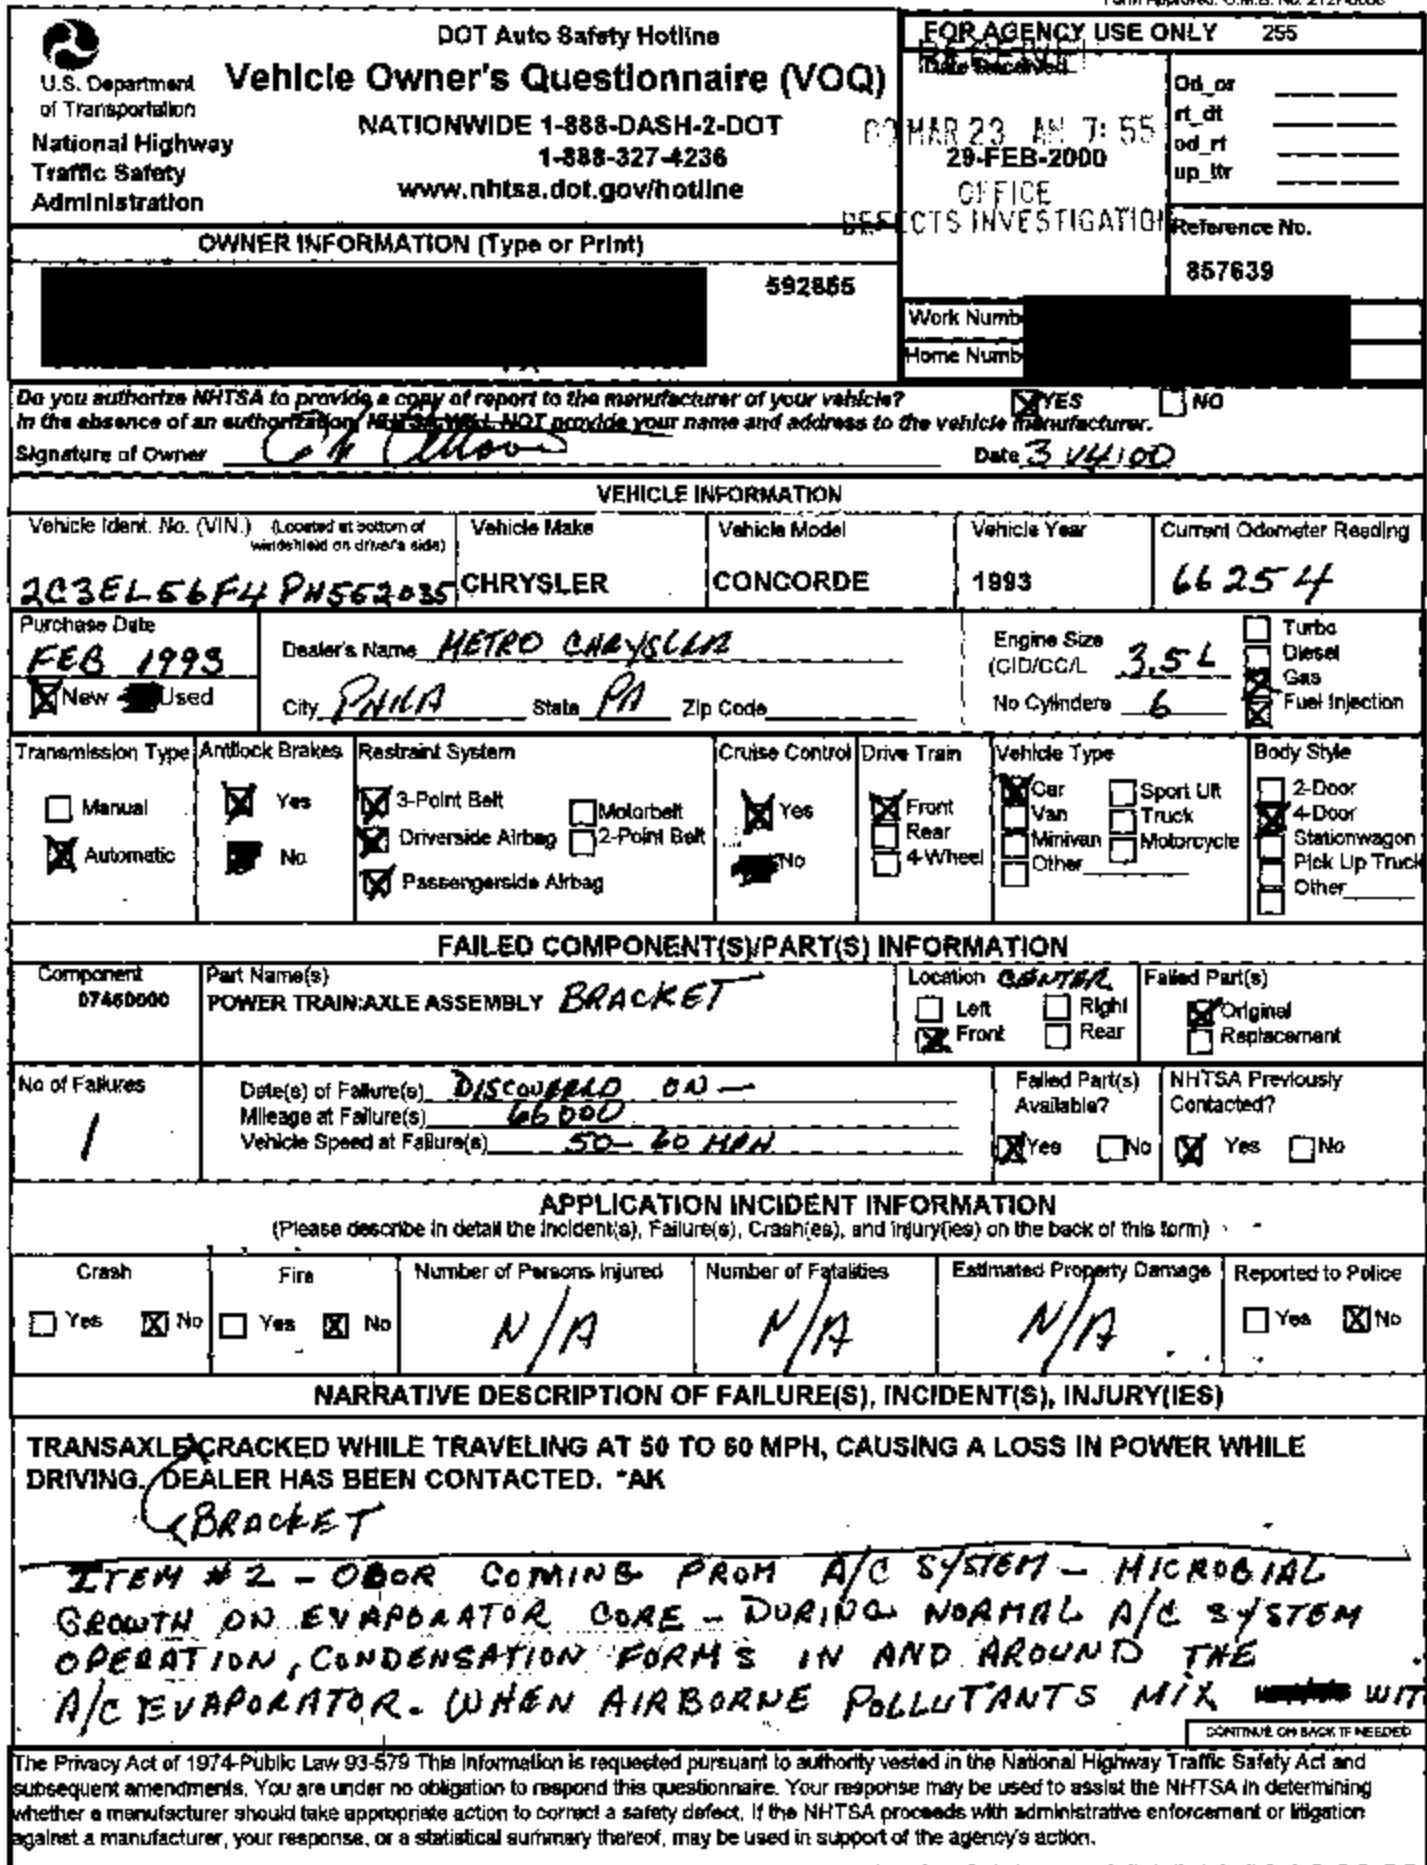 DOT Auto Safety Hotline
Vehicle Owner's Questionnaire (VOQ)
NATIONWIDE 1-888-DASH-2-DOT
1-888-327-4236
www.nhtsa.dot.gov/hotline
U.S. Department
of Transportation
National Highway
Traffic Safety
Administration
FOR AGENCY USE ONLY 255
Date Received
00 MAR 23 AM 7:55
29-FEB-2000
OFFICE
DEFECTS INVESTIGATION
Od_or
rt_dt
od_rf
up_ltr
Reference No.
857639
OWNER INFORMATION (Type or Print)
592855
Work Numb
Home Numb
Do you authorize NHTSA to provide a copy of report to the manufacturer of your vehicle? YES NO
In the absence of an authorization, NHTSA WILL NOT provide your name and address to the vehicle manufacturer.
Signature of Owner
Date
VEHICLE INFORMATION
Vehicle Ident. No. (VIN.) (Located at bottom of windshield on driver's side)
2C3EL56F4 PH552035
Vehicle Make
CHRYSLER
Vehicle Model
CONCORDE
Vehicle Year
1993
Current Odometer Reading
66254
Purchase Date
FEB 1993
New Used
Dealer's Name METRO CHRYSLER
City PHILA State PA Zip Code
Engine Size
(CID/CC/L 3.5 L
No Cylinders 6
Turbo
Diesel
Gas
Fuel Injection
Transmission Type
Manual
Automatic
Antilock Brakes
Yes
No
Restraint System
3-Point Belt
Driverside Airbag
Passengerside Airbag
Motorbelt
2-Point Belt
Cruise Control
Yes
No
Drive Train
Front
Rear
4-Wheel
Vehicle Type
Car
Van
Minivan
Other
Sport Utl
Truck
Motorcycle
Body Style
2-Door
4-Door
Stationwagon
Pick Up Truck
Other
FAILED COMPONENT(S)/PART(S) INFORMATION
Component
07460000
Part Name(s)
POWER TRAIN:AXLE ASSEMBLY BRACKET
Location CENTER
Left Right
Front Rear
Failed Part(s)
Original
Replacement
No of Failures
1
Date(s) of Failure(s) DISCOVERED ON —
Mileage at Failure(s) 66000
Vehicle Speed at Failure(s) 50-60 MPH
Failed Part(s)
Available?
Yes No
NHTSA Previously
Contacted?
Yes No
APPLICATION INCIDENT INFORMATION
(Please describe in detail the incident(s), Failure(s), Crash(es), and injury(ies) on the back of this form)
Crash
Yes No
Fire
Yes No
Number of Persons Injured
N/A
Number of Fatalities
N/A
Estimated Property Damage
N/A
Reported to Police
Yes No
NARRATIVE DESCRIPTION OF FAILURE(S), INCIDENT(S), INJURY(IES)
TRANSAXLE CRACKED WHILE TRAVELING AT 50 TO 60 MPH, CAUSING A LOSS IN POWER WHILE
DRIVING. DEALER HAS BEEN CONTACTED. *AK
BRACKET
ITEM #2 - ODOR COMING FROM A/C SYSTEM - MICROBIAL
GROWTH ON EVAPORATOR CORE - DURING NORMAL A/C SYSTEM
OPERATION, CONDENSATION FORMS IN AND AROUND THE
A/C EVAPORATOR. WHEN AIRBORNE POLLUTANTS MIX WIT
CONTINUE ON BACK IF NEEDED
The Privacy Act of 1974-Public Law 93-579 This information is requested pursuant to authority vested in the National Highway Traffic Safety Act and
subsequent amendments. You are under no obligation to respond this questionnaire. Your response may be used to assist the NHTSA in determining
whether a manufacturer should take appropriate action to correct a safety defect. If the NHTSA proceeds with administrative enforcement or litigation
against a manufacturer, your response, or a statistical summary thereof, may be used in support of the agency's action.